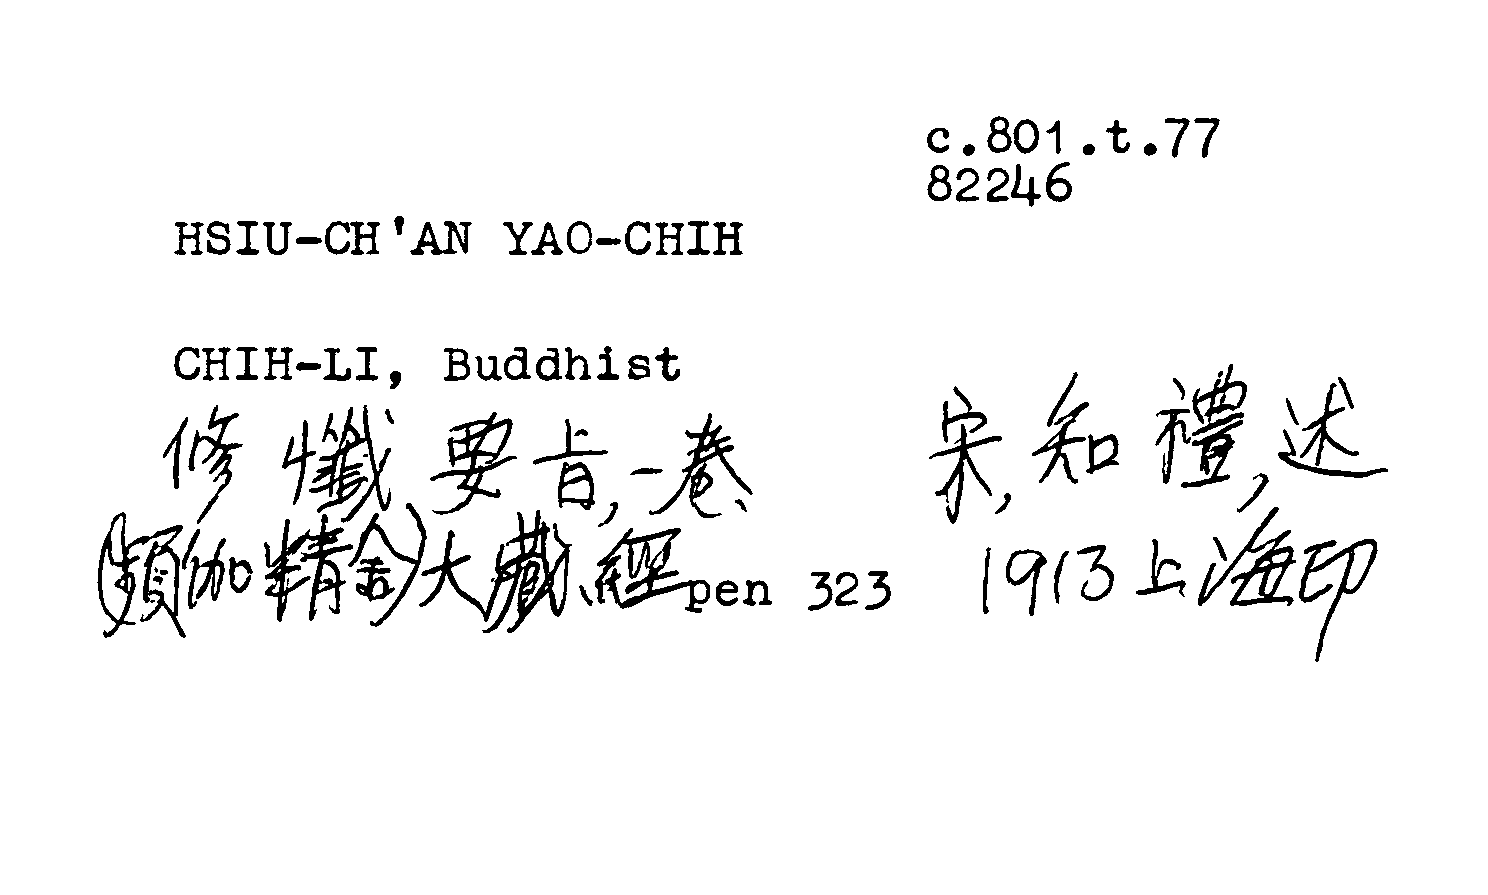 c.801.t.77
82246
HSIU-CH'AN YAO-CHIH
CHIH-LI, Buddhist
修懺要旨,一卷、 宋,知禮,述
(頻伽精舍)大藏經pen 323 1913上海印